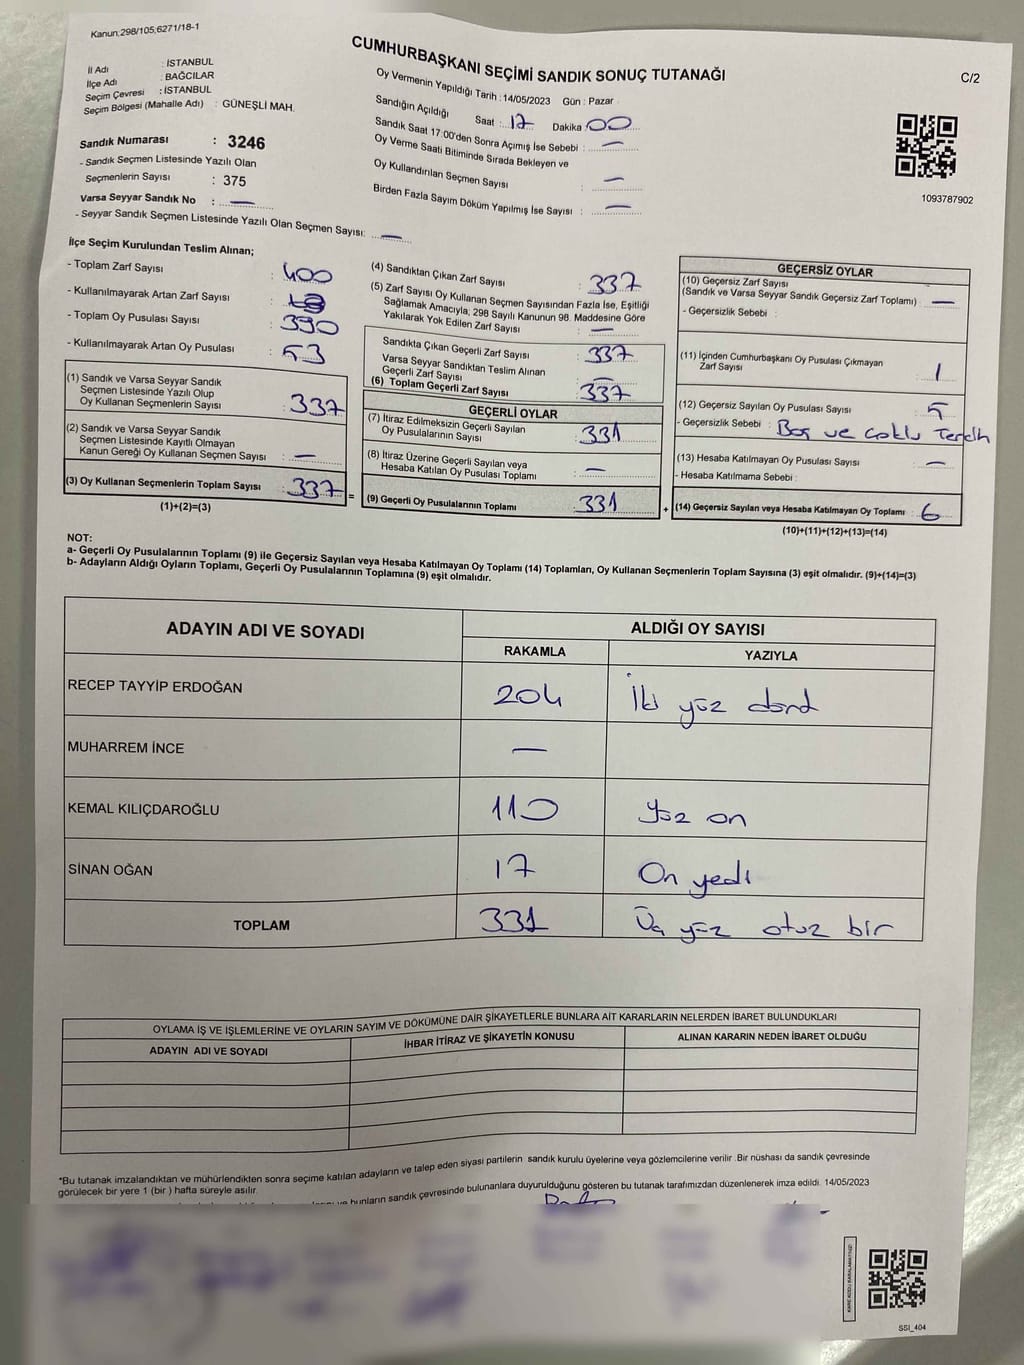 Kanun;298/105;6271/18-1
CUMHURBAŞKANI SEÇİMİ SANDIK SONUÇ TUTANAĞI
C/2
İl Adı : İSTANBUL
İlçe Adı : BAĞCILAR
Seçim Çevresi : İSTANBUL
Seçim Bölgesi (Mahalle Adı) : GÜNEŞLİ MAH.
Sandık Numarası : 3246
- Sandık Seçmen Listesinde Yazılı Olan
Seçmenlerin Sayısı : 375
Varsa Seyyar Sandık No : —
- Seyyar Sandık Seçmen Listesinde Yazılı Olan Seçmen Sayısı: —
Oy Vermenin Yapıldığı Tarih : 14/05/2023 Gün : Pazar
Sandığın Açıldığı Saat : 17 Dakika 00
Sandık Saat 17:00'den Sonra Açımış İse Sebebi : —
Oy Verme Saati Bitiminde Sırada Bekleyen ve
Oy Kullandırılan Seçmen Sayısı : —
Birden Fazla Sayım Döküm Yapılmış İse Sayısı : —
1093787902
İlçe Seçim Kurulundan Teslim Alınan;
- Toplam Zarf Sayısı : 400
- Kullanılmayarak Artan Zarf Sayısı :
- Toplam Oy Pusulası Sayısı : 390
- Kullanılmayarak Artan Oy Pusulası : 53
(1) Sandık ve Varsa Seyyar Sandık
Seçmen Listesinde Yazılı Olup
Oy Kullanan Seçmenlerin Sayısı : 337
(2) Sandık ve Varsa Seyyar Sandık
Seçmen Listesinde Kayıtlı Olmayan
Kanun Gereği Oy Kullanan Seçmen Sayısı : —
(3) Oy Kullanan Seçmenlerin Toplam Sayısı : 337 =
(1)+(2)=(3)
(4) Sandıktan Çıkan Zarf Sayısı : 337
(5) Zarf Sayısı Oy Kullanan Seçmen Sayısından Fazla İse, Eşitliği
Sağlamak Amacıyla; 298 Sayılı Kanunun 98. Maddesine Göre
Yakılarak Yok Edilen Zarf Sayısı : —
Sandıkta Çıkan Geçerli Zarf Sayısı : 337
Varsa Seyyar Sandıktan Teslim Alınan
Geçerli Zarf Sayısı : —
(6) Toplam Geçerli Zarf Sayısı : 337
GEÇERLİ OYLAR
(7) İtiraz Edilmeksizin Geçerli Sayılan
Oy Pusulalarının Sayısı : 331
(8) İtiraz Üzerine Geçerli Sayılan veya
Hesaba Katılan Oy Pusulası Toplamı : —
(9) Geçerli Oy Pusulalarının Toplamı : 331 +
GEÇERSİZ OYLAR
(10) Geçersiz Zarf Sayısı
(Sandık ve Varsa Seyyar Sandık Geçersiz Zarf Toplamı) : —
- Geçersizlik Sebebi :
(11) İçinden Cumhurbaşkanı Oy Pusulası Çıkmayan
Zarf Sayısı : 1
(12) Geçersiz Sayılan Oy Pusulası Sayısı : 5
- Geçersizlik Sebebi : Boş ve çoklu Tercih
(13) Hesaba Katılmayan Oy Pusulası Sayısı : —
- Hesaba Katılmama Sebebi :
(14) Geçersiz Sayılan veya Hesaba Katılmayan Oy Toplamı : 6
(10)+(11)+(12)+(13)=(14)
NOT:
a- Geçerli Oy Pusulalarının Toplamı (9) ile Geçersiz Sayılan veya Hesaba Katılmayan Oy Toplamı (14) Toplamları, Oy Kullanan Seçmenlerin Toplam Sayısına (3) eşit olmalıdır. (9)+(14)=(3)
b- Adayların Aldığı Oyların Toplamı, Geçerli Oy Pusulalarının Toplamına (9) eşit olmalıdır.
ADAYIN ADI VE SOYADI ALDIĞI OY SAYISI
RAKAMLA YAZIYLA
RECEP TAYYİP ERDOĞAN 204 İki yüz dört
MUHARREM İNCE —
KEMAL KILIÇDAROĞLU 110 Yüz on
SİNAN OĞAN 17 On yedi
TOPLAM 331 Üç yüz otuz bir
OYLAMA İŞ VE İŞLEMLERİNE VE OYLARIN SAYIM VE DÖKÜMÜNE DAİR ŞİKAYETLERLE BUNLARA AİT KARARLARIN NELERDEN İBARET BULUNDUKLARI
ADAYIN ADI VE SOYADI İHBAR İTİRAZ VE ŞİKAYETİN KONUSU ALINAN KARARIN NEDEN İBARET OLDUĞU
*Bu tutanak imzalandıktan ve mühürlendikten sonra seçime katılan adayların ve talep eden siyasi partilerin sandık kurulu üyelerine veya gözlemcilerine verilir .Bir nüshası da sandık çevresinde
görülecek bir yere 1 (bir ) hafta süreyle asılır.
ve bunların sandık çevresinde bulunanlara duyurulduğunu gösteren bu tutanak tarafımızdan düzenlenerek imza edildi. 14/05/2023
KARE KODU KARALAMAYINIZ!
SSI_404